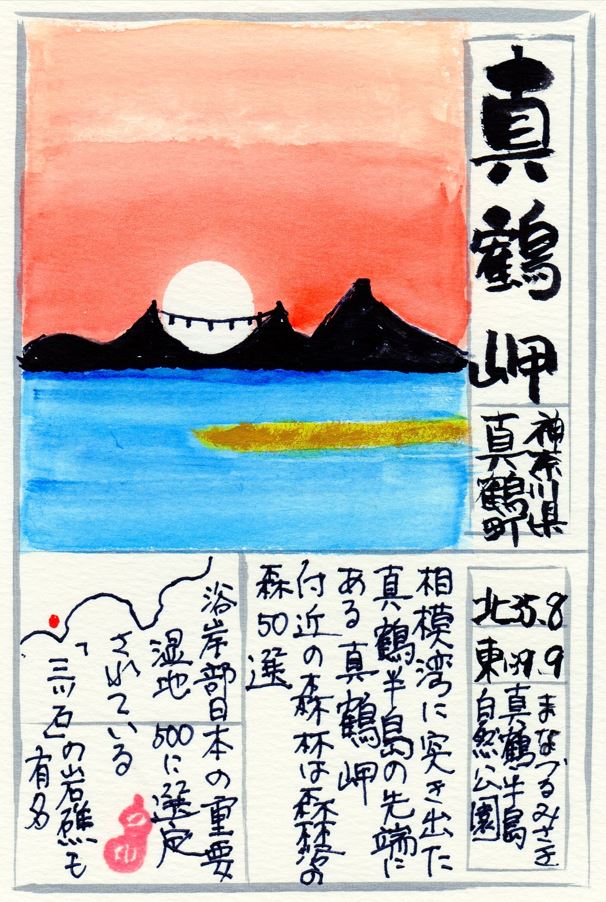 真鶴岬
神奈川県
真鶴町
北35.8
東139.9
まなづるみさき
真鶴半島
自然公園
相模湾に突き出た
真鶴半島の先端に
ある真鶴岬
付近の森林は森林浴の
森50選
沿岸部日本の重要
湿地500に選定
されている
「三ツ石」の岩礁も
有名